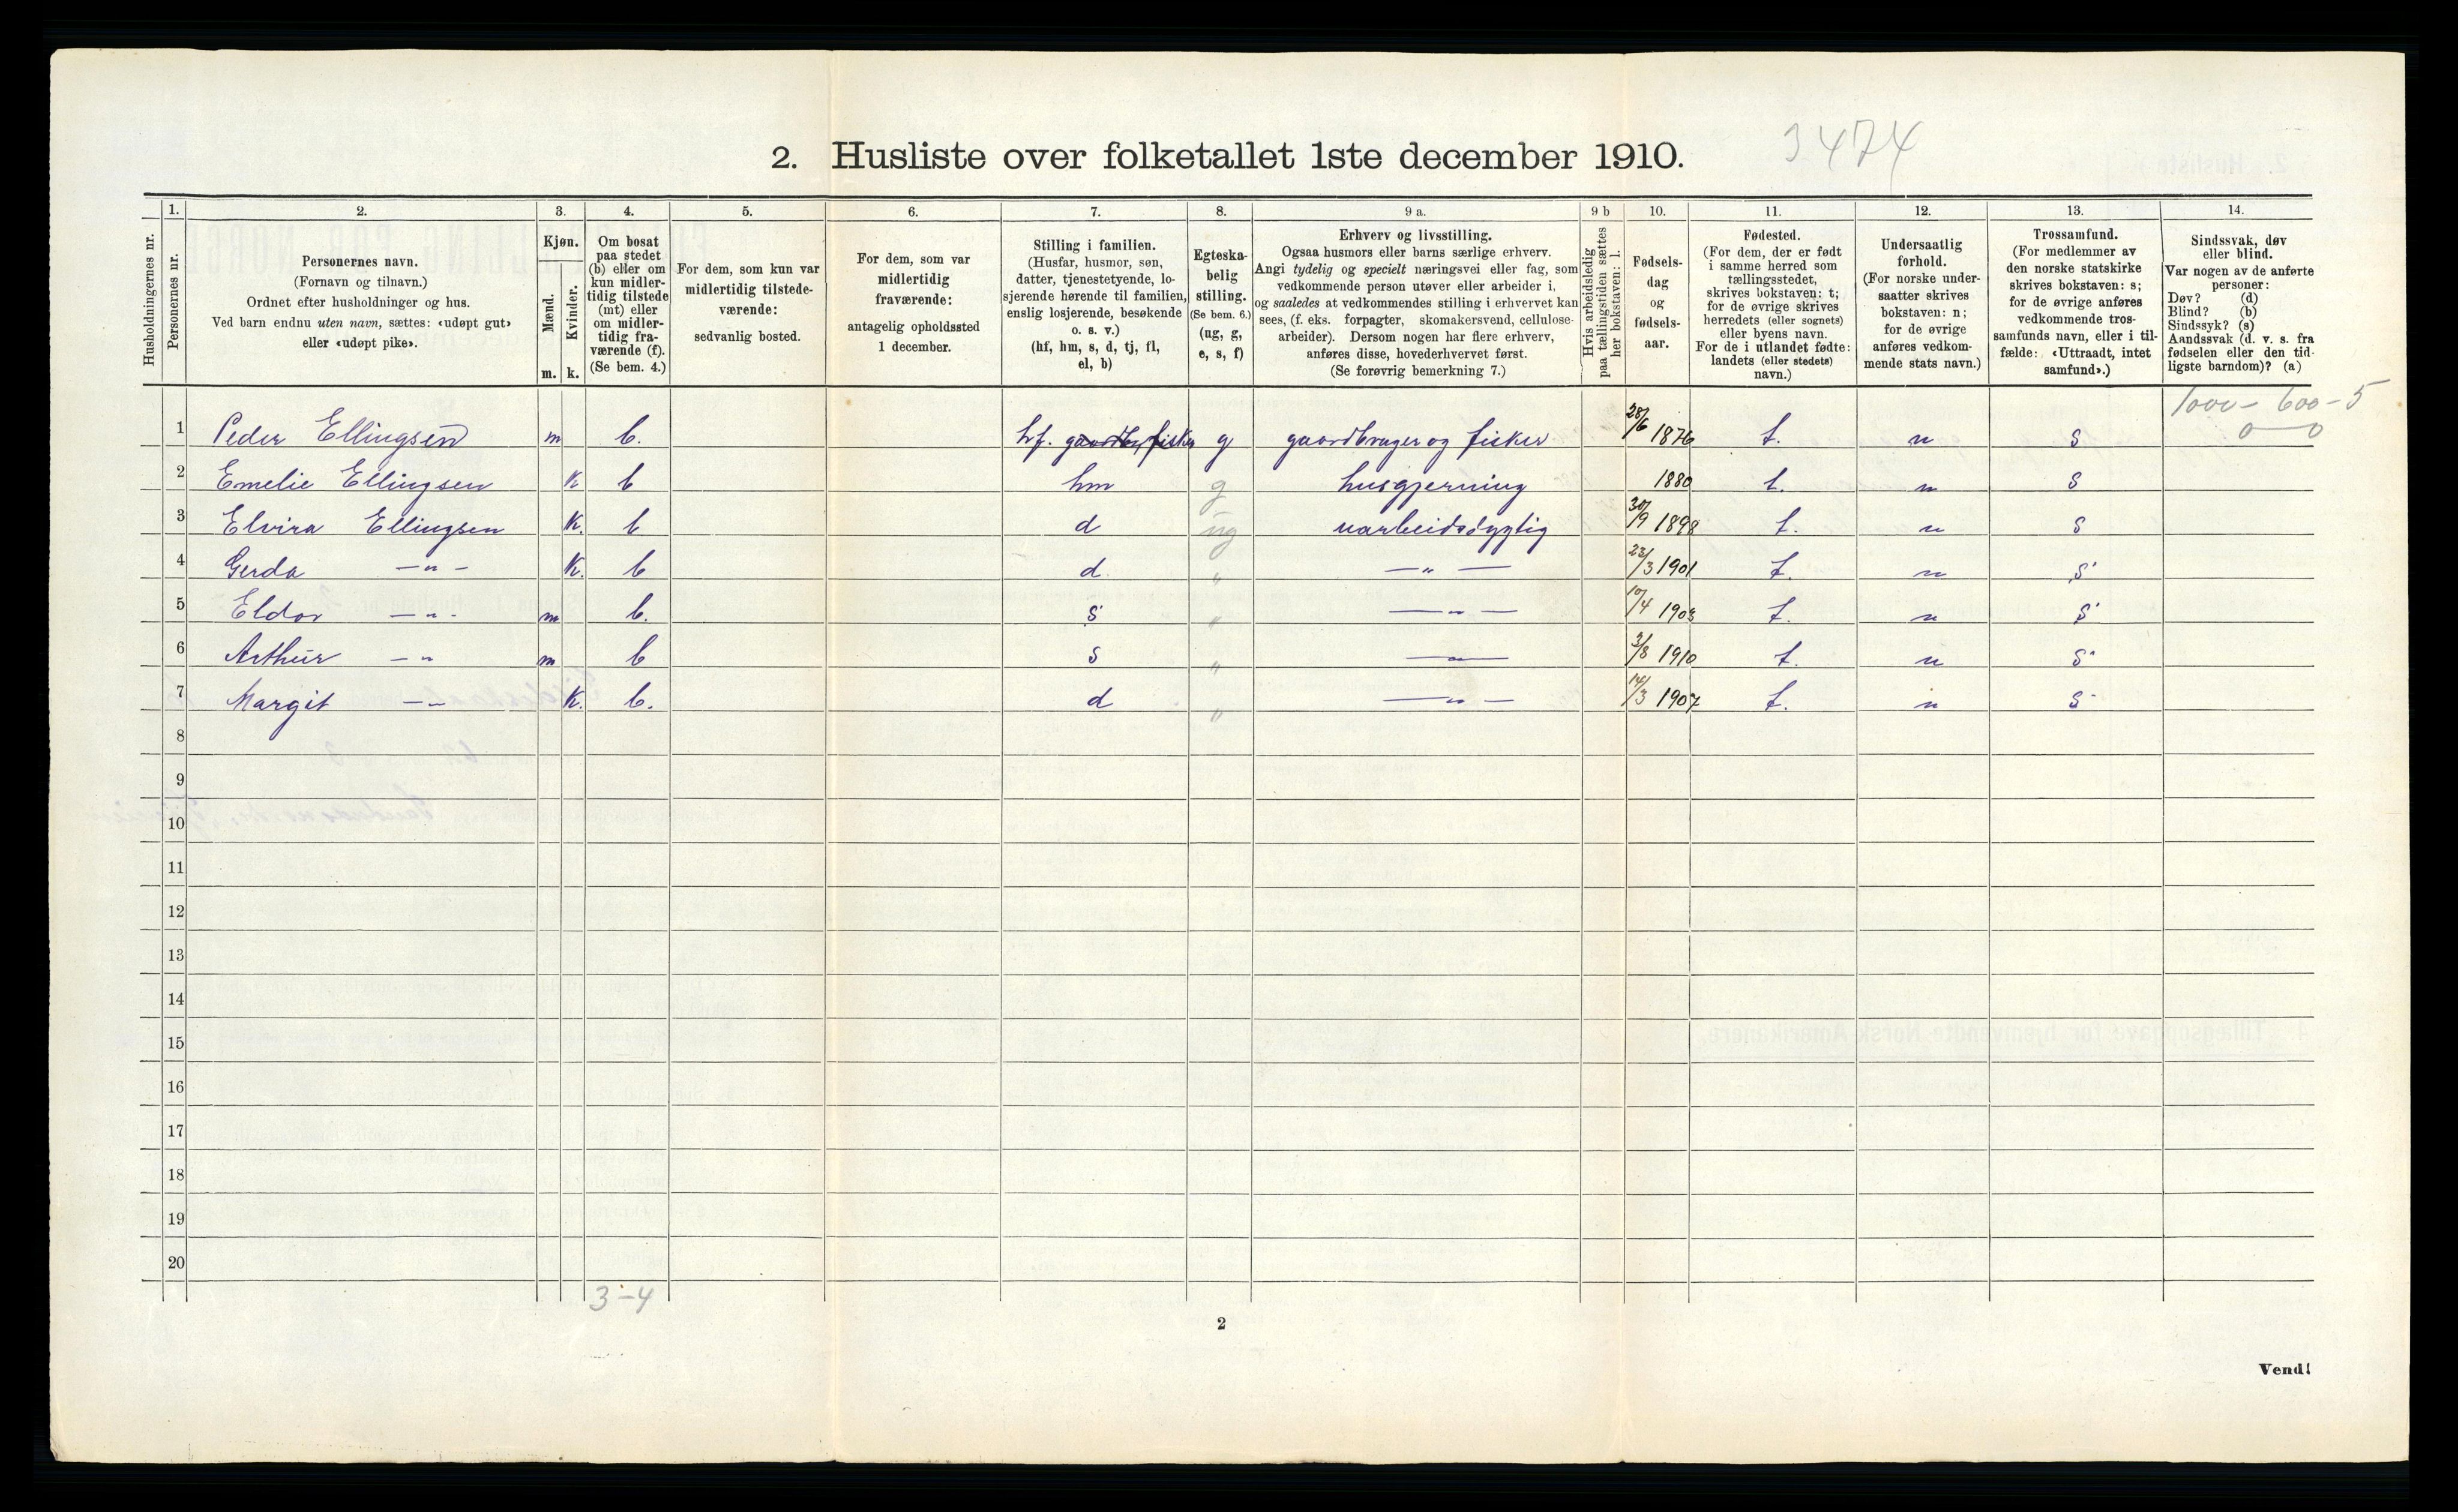 2. Husliste over folketallet 1ste december 1910.
3474
Husholdningernes nr.
1.
Personernes nr.
2.
Personernes navn.
(Fornavn og tilnavn.)
Ordnet efter husholdninger og hus.
Ved barn endnu uten navn, sættes: «udøpt gut»
eller «udøpt pike».
3.
Kjøn.
Mænd.
Kvinder.
m.
k.
4.
Om bosat
paa stedet
(b) eller om
kun midler-
tidig tilstede
(mt) eller
om midler-
tidig fra-
værende (f).
(Se bem. 4.)
5.
For dem, som kun var
midlertidig tilstede-
værende:
sedvanlig bosted.
6.
For dem, som var
midlertidig
fraværende:
antagelig opholdssted
1 december.
7.
Stilling i familien.
(Husfar, husmor, søn,
datter, tjenestetyende, lo-
sjerende hørende til familien,
enslig losjerende, besøkende
o. s. v.)
(hf, hm, s, d, tj, fl,
el, b)
8.
Egteska-
belig
stilling.
(Se bem. 6.)
(ug, g,
e, s, f)
9 a.
Erhverv og livsstilling.
Ogsaa husmors eller barns særlige erhverv.
Angi tydelig og specielt næringsvei eller fag, som
vedkommende person utøver eller arbeider i,
og saaledes at vedkommendes stilling i erhvervet kan
sees, (f. eks. forpagter, skomakersvend, cellulose-
arbeider). Dersom nogen har flere erhverv,
anføres disse, hovederhvervet først.
(Se forøvrig bemerkning 7.)
9 b
Hvis arbeidsledig
paa tællingstiden sættes
her bokstaven: l.
10.
Fødsels-
dag
og
fødsels-
aar.
11.
Fødested.
(For dem, der er født
i samme herred som
tællingsstedet,
skrives bokstaven: t;
for de øvrige skrives
herredets (eller sognets)
eller byens navn.
For de i utlandet fødte:
landets (eller stedets)
navn.)
12.
Undersaatlig
forhold.
(For norske under-
saatter skrives
bokstaven: n;
for de øvrige
anføres vedkom-
mende stats navn.)
13.
Trossamfund.
(For medlemmer av
den norske statskirke
skrives bokstaven: s;
for de øvrige anføres
vedkommende tros-
samfunds navn, eller i til-
fælde: «Uttraadt, intet
samfund».)
14.
Sindssvak, døv
eller blind.
Var nogen av de anførte
personer:
Døv? (d)
Blind? (b)
Sindssyk? (s)
Aandssvak (d. v. s. fra
fødselen eller den tid-
ligste barndom)? (a)
1000 - 600 - 5
0 — 0
1 Peder Ellingsen m b. hf. gaardbr, fisker g gaardbruger og fisker 28/6 1876 t. n s
2 Emelie Ellingsen K b hm g husgjerning 1880 t. n s
3 Elvira Ellingsen K. b d ug uarbeidsdygtig 30/9 1898 t. n s
4 Gerda —"— K. b d. " —"— 23/3 1901 t. n s
5 Eldor —"— m b. s " —"— 10/4 1903 t. n s
6 Arthur —"— m b s " —"— 3/8 1910 t. n s
7 Margit —"— K. b. d " —"— 14/3 1907 t. n s
8
9
10
11
12
13
14
15
16
17
18
19
20
3-4
2
Vend!